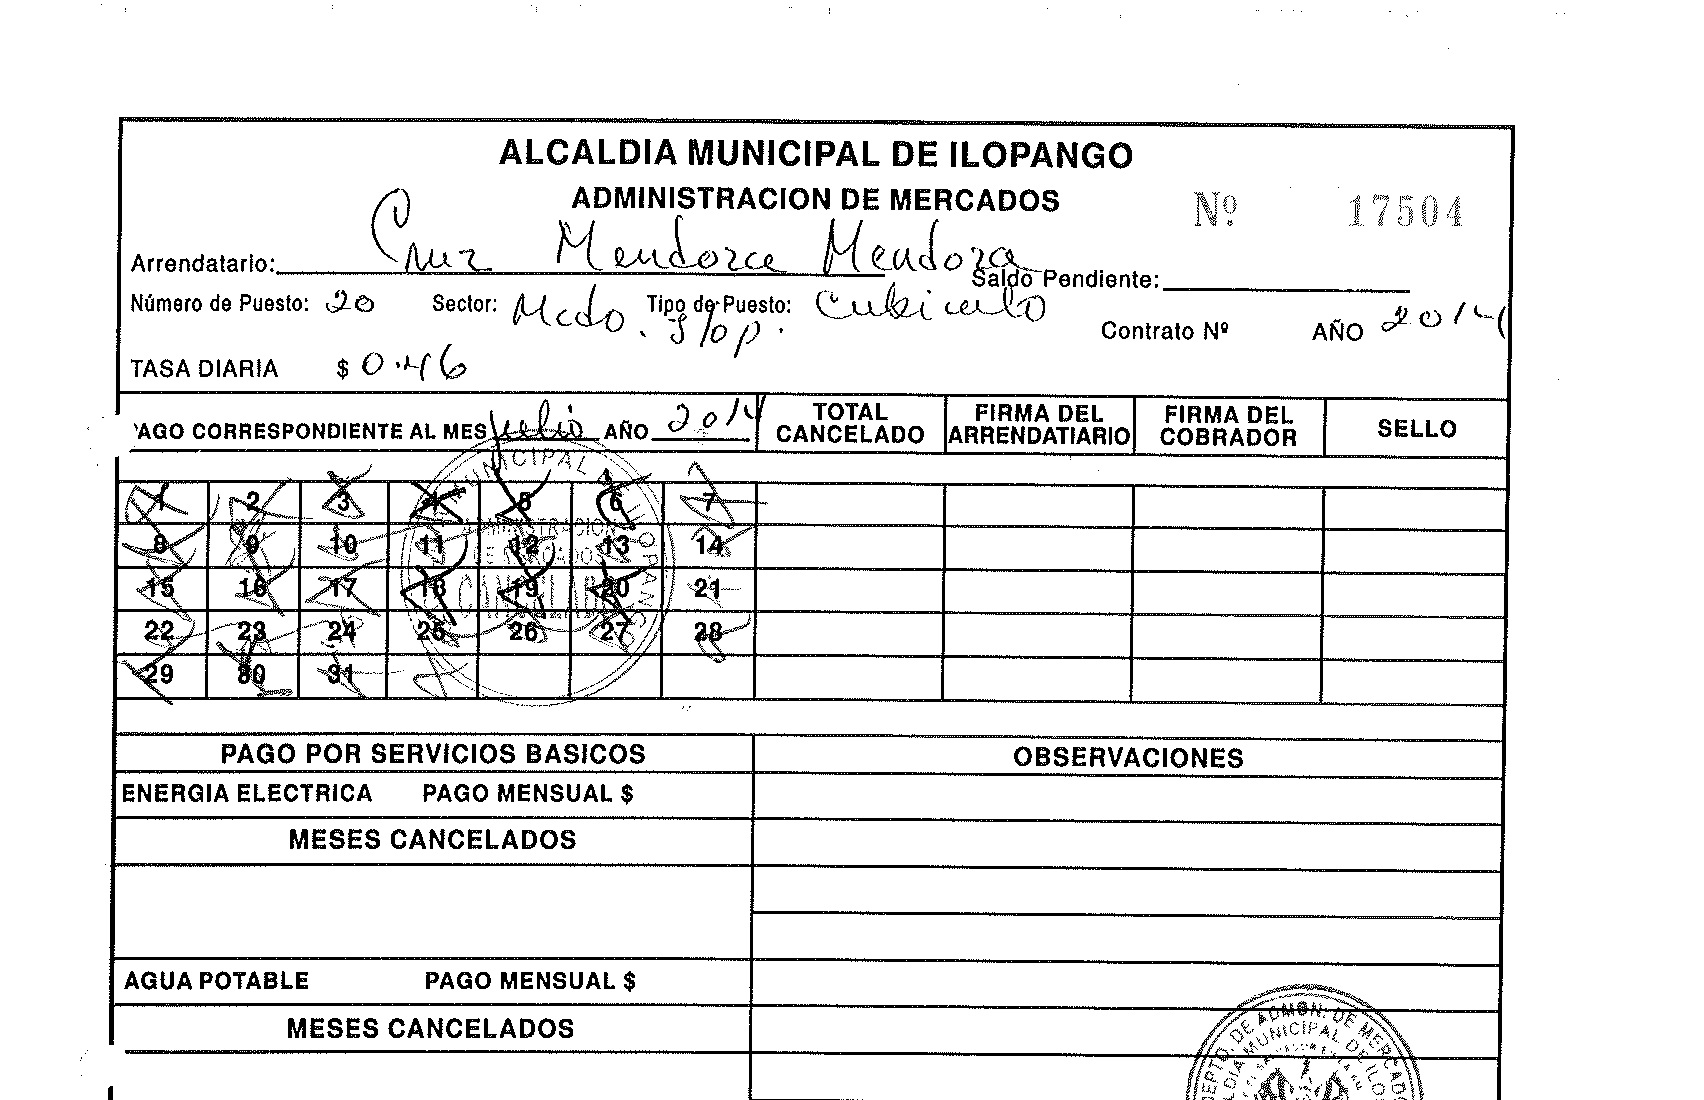 ALCALDIA MUNICIPAL DE ILOPANGO
ADMINISTRACION DE MERCADOS
Nº 17504
Arrendatario: Cruz Mendoza Mendoza
Saldo Pendiente:
Número de Puesto: 20 Sector: Mcdo. Ilop. Tipo de Puesto: Cubiculo
Contrato Nº AÑO 2014
TASA DIARIA $ 0.46
PAGO CORRESPONDIENTE AL MES Julio AÑO 2014 TOTAL CANCELADO FIRMA DEL ARRENDATIARIO FIRMA DEL COBRADOR SELLO
1 2 3 4 5 6 7
8 9 10 11 12 13 14
15 16 17 18 19 20 21
22 23 24 25 26 27 28
29 30 31
MUNICIPAL ILOPANGO
ADMINISTRACION
DE MERCADOS
CANCELADO
PAGO POR SERVICIOS BASICOS OBSERVACIONES
ENERGIA ELECTRICA PAGO MENSUAL $
MESES CANCELADOS
AGUA POTABLE PAGO MENSUAL $
MESES CANCELADOS
DEPTO. DE ADMON. DE MERCADO
MUNICIPAL DE ILO